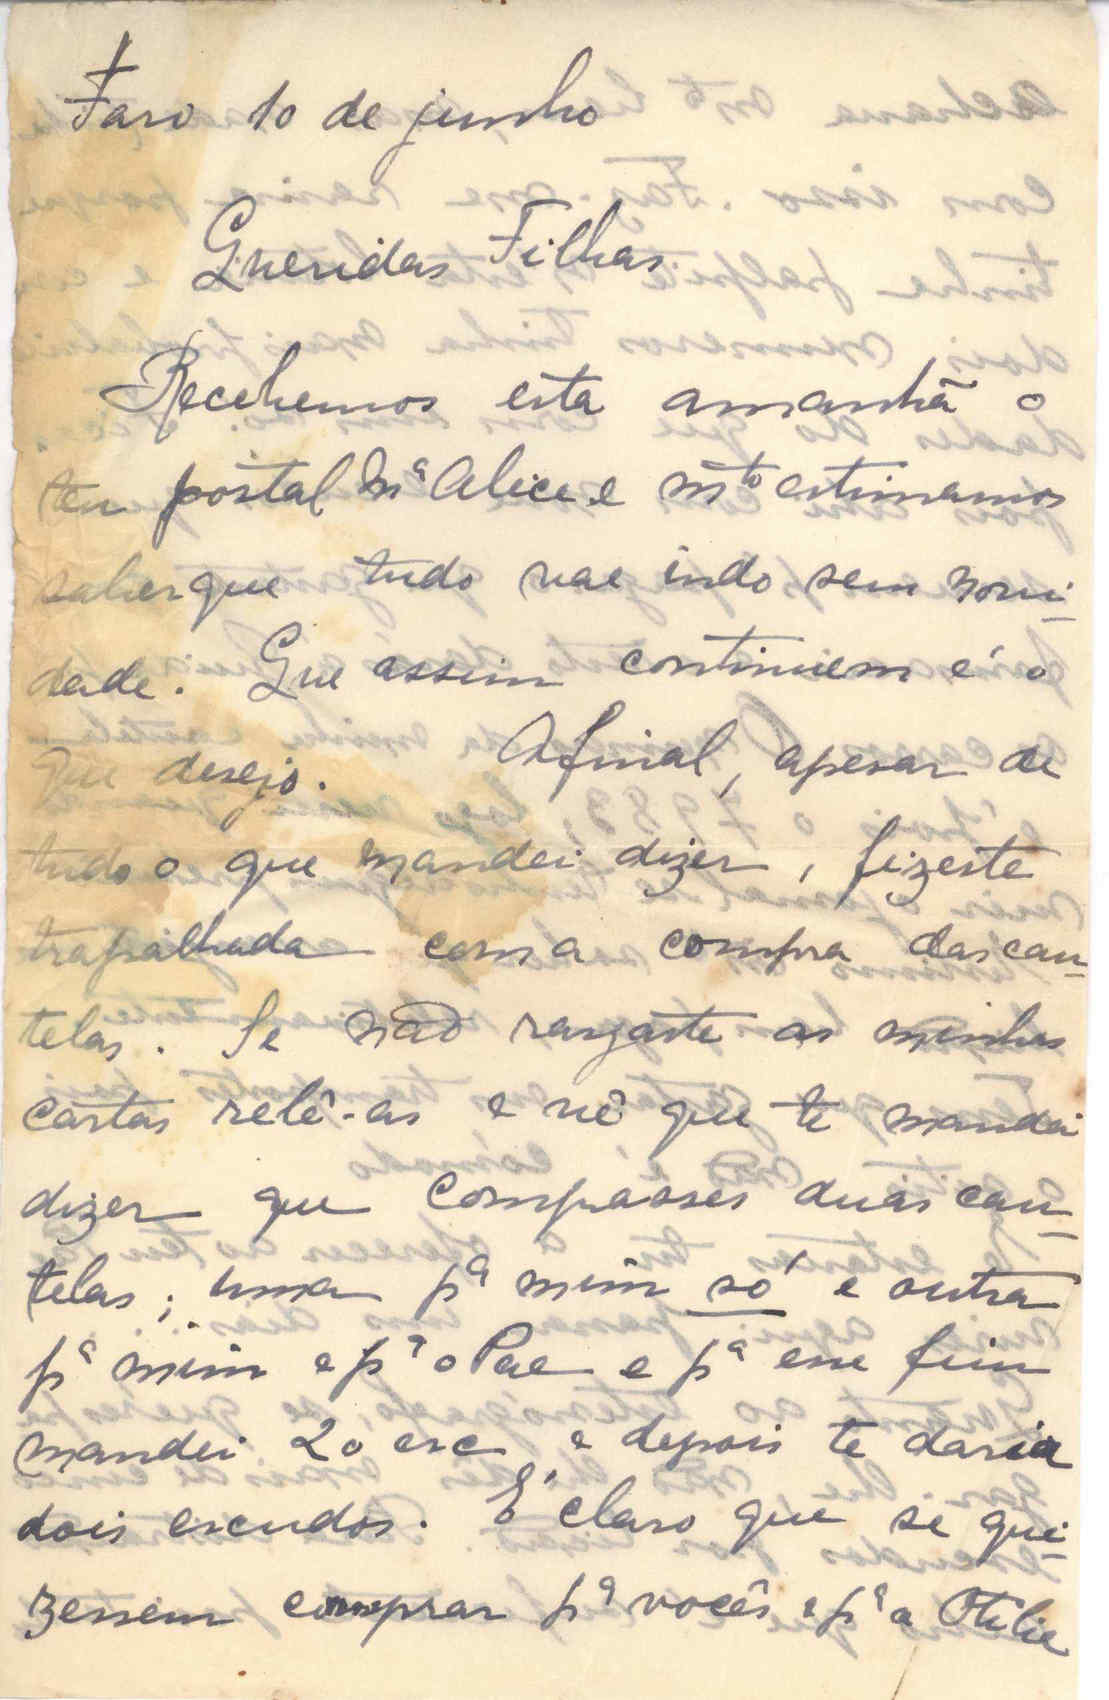 Faro 10 de junho
Queridas Filhas
Recebemos esta amanhã o
teu postal Mª Alice e mto estimamos
saber que tudo vae indo sem novi-
dade. Que assim continuem é o
que desejo. Afinal, apesar de
tudo o que mandei dizer, fizeste
trapalhada com a compra das cau-
telas. Se não rasgaste as minhas
cartas relê-as e vê que te mandei
dizer que comprasses duas cau-
telas; uma pª mim só e outra
pª mim e pª o Pae e pª esse fim
mandei 20 esc e depois te daria
dois escudos. É claro que se qui-
zessem comprar pª vocês e pª a Otilia